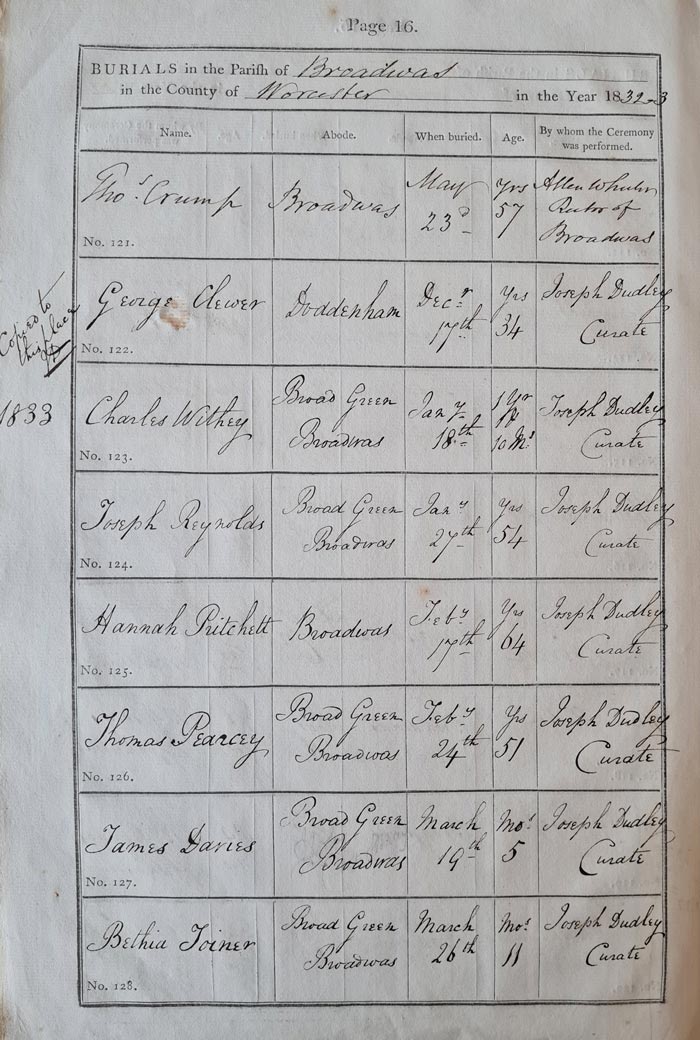 Page 16.
BURIALS in the Parish of Broadwas
in the County of Worcester in the Year 1832-3
Name. Abode. When buried. Age. By whom the Ceremony was performed.
Thos. Crump Broadwas May 23d Yrs 57 Allen Wheeler Rector of Broadwas
No. 121.
George Clewer Doddenham Decr 17th Yrs 34 Joseph Dudley Curate
No. 122.
Copied to
this place
JD
1833
Charles Withey Broad Green Broadwas Jany 18th 1 Yr & 10 Ms Joseph Dudley Curate
No. 123.
Joseph Reynolds Broad Green Broadwas Jany 27th Yrs 54 Joseph Dudley Curate
No. 124.
Hannah Pritchett Broadwas Feby 17th Yrs 64 Joseph Dudley Curate
No. 125.
Thomas Pearcey Broad Green Broadwas Feby 24th Yrs 51 Joseph Dudley Curate
No. 126.
James Davies Broad Green Broadwas March 19th Mos 5 Joseph Dudley Curate
No. 127.
Bethia Joiner Broad Green Broadwas March 26th Mos 11 Joseph Dudley Curate
No. 128.